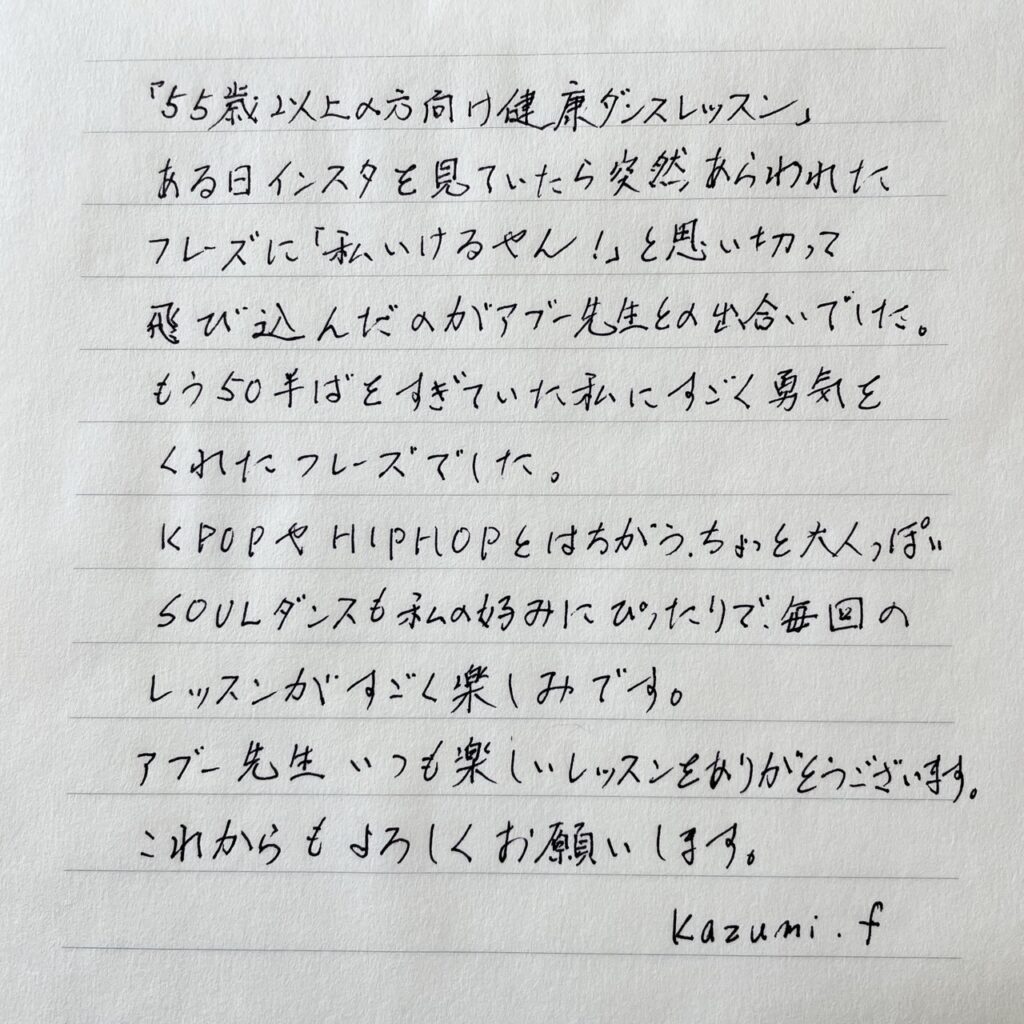 「55歳以上の方向け健康ダンスレッスン」
ある日インスタを見ていたら突然あらわれた
フレーズに「私いけるやん!」と思い切って
飛び込んだのがアブー先生との出合いでした。
もう50半ばをすぎていた私にすごく勇気を
くれたフレーズでした。
KPOPやHIPHOPとはちがう、ちょっと大人っぽい
SOULダンスも私の好みにぴったりで、毎回の
レッスンがすごく楽しみです。
アブー先生いつも楽しいレッスンをありがとうございます。
これからもよろしくお願いします。
Kazumi.f